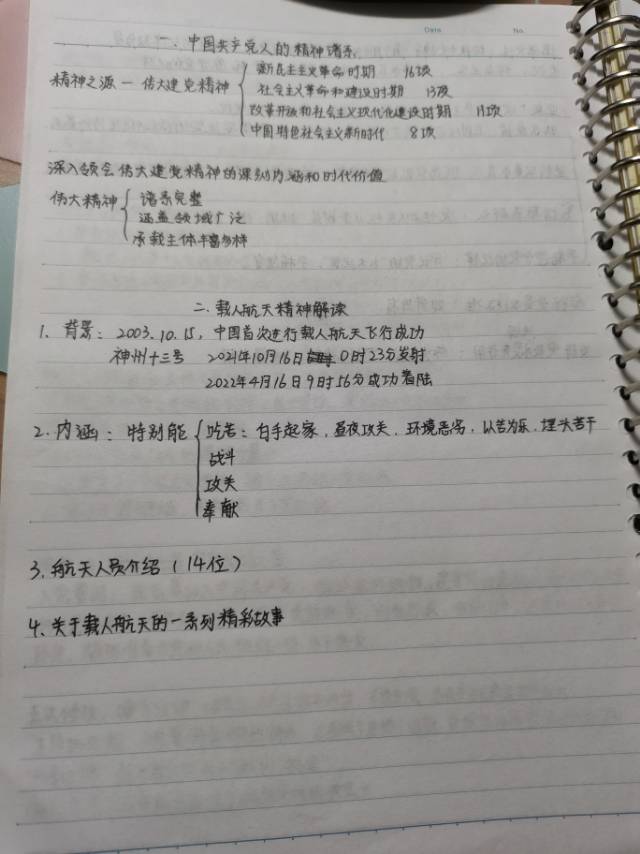 Date No.
一、中国共产党人的精神谱系
新民主主义革命时期 16项
精神之源 — 伟大建党精神
社会主义革命和建设时期 13项
改革开放和社会主义现代化建设时期 11项
中国特色社会主义新时代 8项
深入领会伟大建党精神的深刻内涵和时代价值
伟大精神
谱系完整
涵盖领域广泛
承载主体丰富多样
二、载人航天精神解读
1. 背景：2003.10.15，中国首次进行载人航天飞行成功
神州十三号 2021年10月16日 0时23分发射
2022年4月16日9时56分成功着陆
2. 内涵：特别能
吃苦：白手起家、昼夜攻关、环境恶劣、以苦为乐、埋头苦干
战斗
攻关
奉献
3、航天人员介绍（14位）
4、关于载人航天的一系列精彩故事